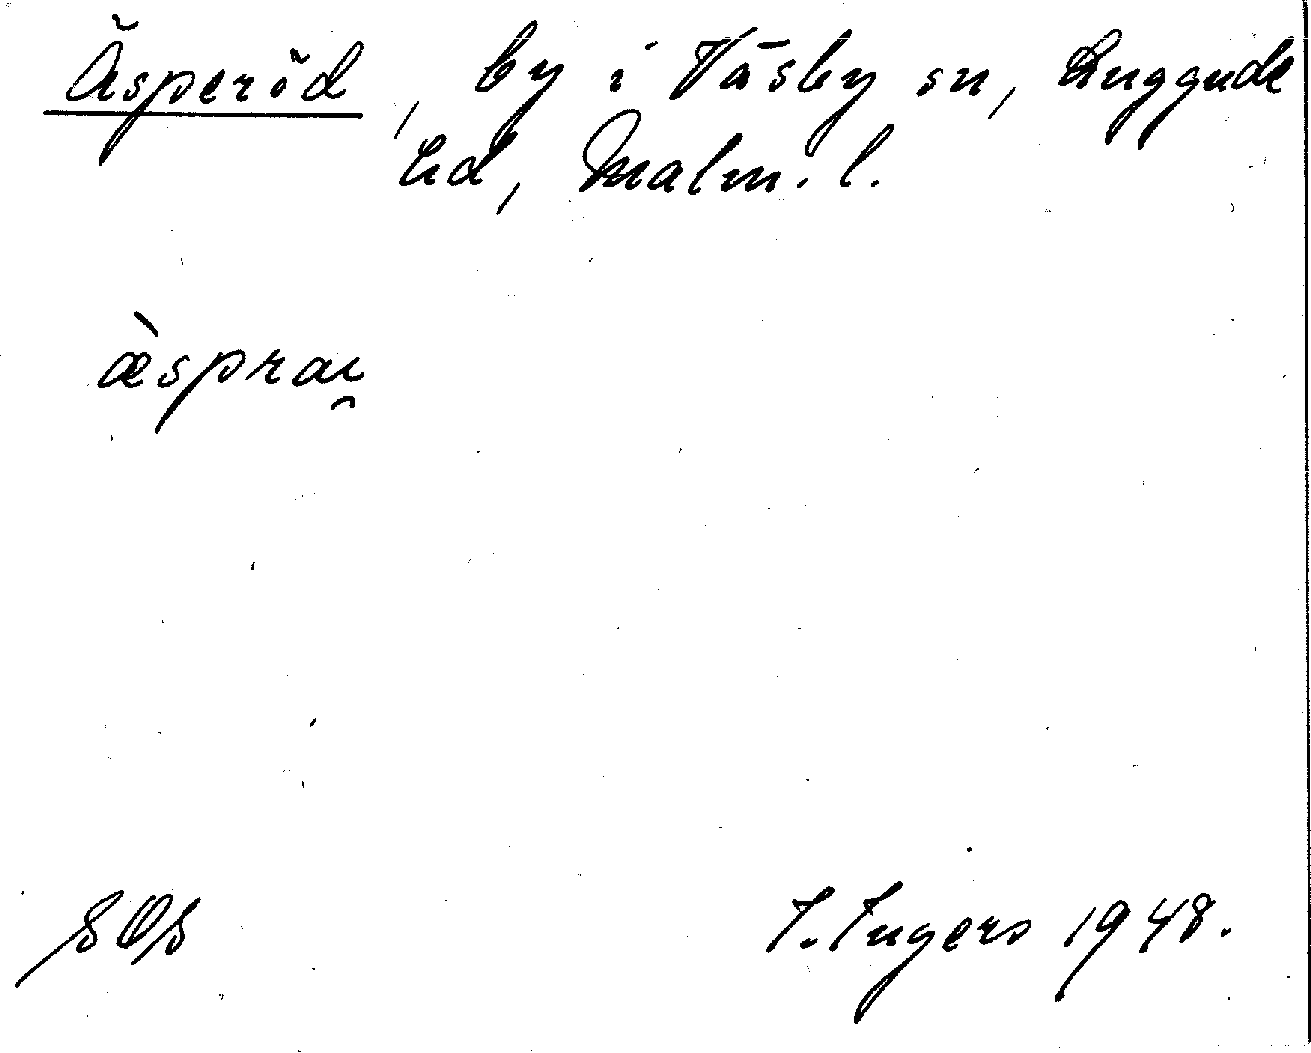 Äsperöd, by i Väsby sn, Luggude
hd, Malm. l.
æ̀sprai̯
SOS
I. Ingers 1948.